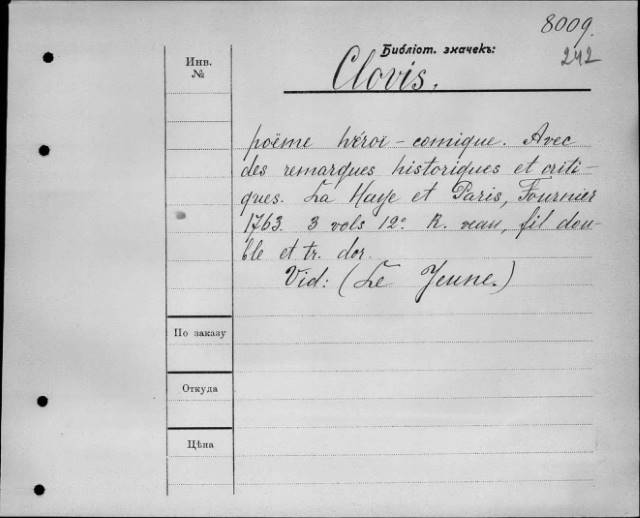 8009.
242
Библіот. значекъ:
Clovis.
Инв.
№
poëme héroï-comique. Avec
des remarques historiques et criti-
ques. La Haye et Paris, Fournier
1763. 3 vols 12º. R. veau, fil dou-
ble et tr. dor.
Vid: (Le Jeune.)
По заказу
Откуда
Цѣна